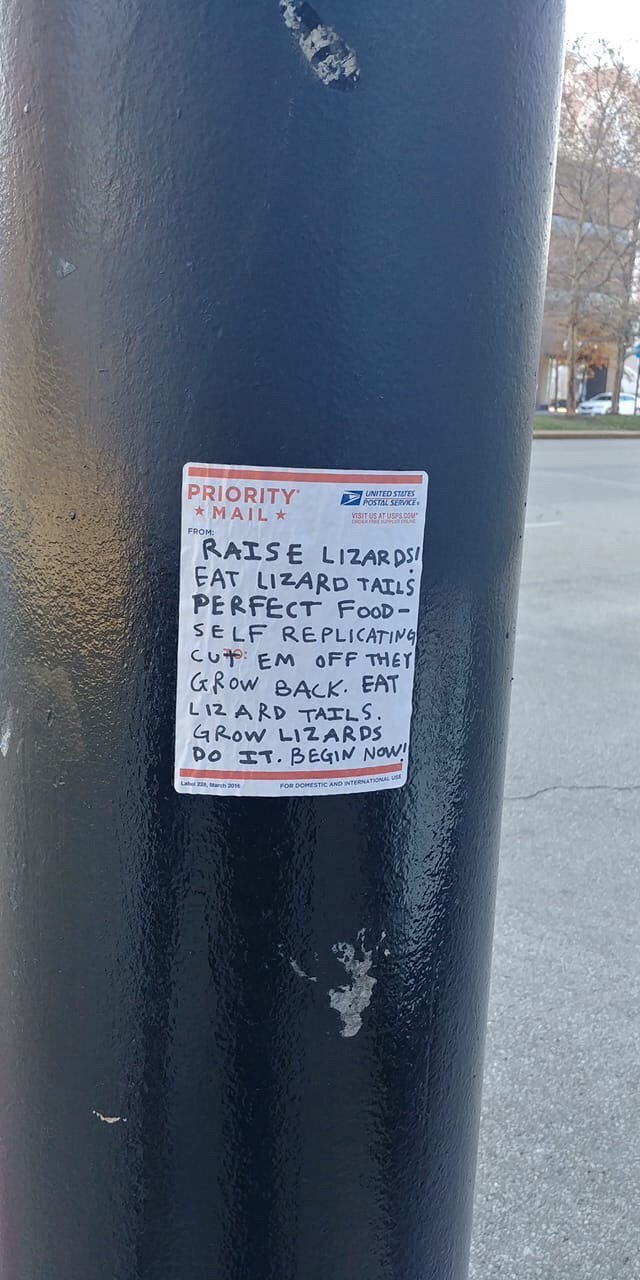 PRIORITY®
★ MAIL ★
UNITED STATES
POSTAL SERVICE®
VISIT US AT USPS.COM®
ORDER FREE SUPPLIES ONLINE
FROM:
RAISE LIZARDS!
EAT LIZARD TAILS
PERFECT FOOD-
SELF REPLICATING
TO:
CUT EM OFF THEY
GROW BACK. EAT
LIZARD TAILS.
GROW LIZARDS
DO IT. BEGIN NOW!
Label 228, March 2016
FOR DOMESTIC AND INTERNATIONAL USE